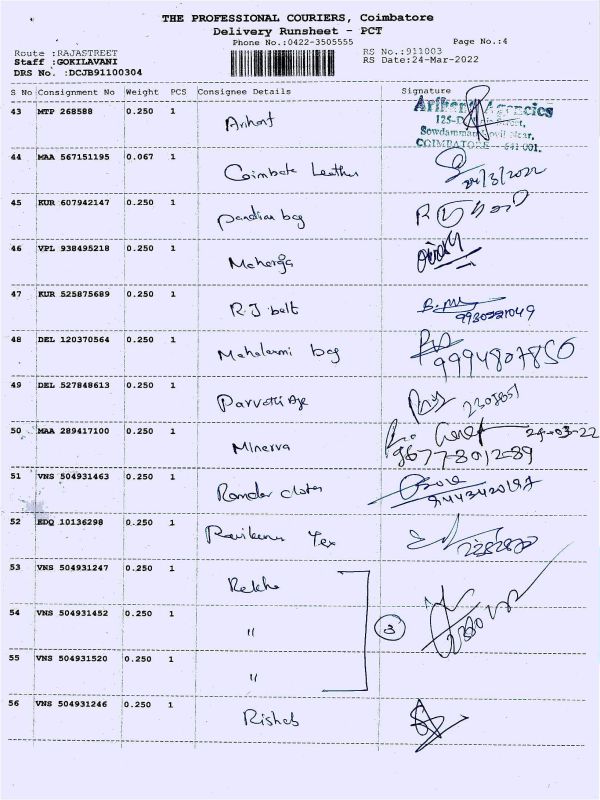 THE PROFESSIONAL COURIERS, Coimbatore
Delivery Runsheet - PCT
Phone No.:0422-3505555
Page No.:4
Route :RAJASTREET
RS No.:911003
Staff :GOKILAVANI
RS Date:24-Mar-2022
DRS No. :DCJB91100304
S No Consignment No Weight PCS Consignee Details Signature
43 MTP 268588 0.250 1 Arihant
Arihant Agencies
Sowdamman Kovil Near,
COIMBATORE - 641 001.
44 MAA 567151195 0.067 1 Coimbate Leather 24/3/2022
45 KUR 607942147 0.250 1 Pandian bag
46 VPL 938495218 0.250 1 Maharaja
47 KUR 525875689 0.250 1 R.J belt 9930221049
48 DEL 120370564 0.250 1 Mahalaxmi bag 9994807856
49 DEL 527848613 0.250 1 Parvathi Age 2303851
50 MAA 289417100 0.250 1 Minerva 24-03-22
9677301289
51 VNS 504931463 0.250 1 9443420197
52 EDQ 10136298 0.250 1 Tex
53 VNS 504931247 0.250 1 Rekha
54 VNS 504931452 0.250 1 " 3
55 VNS 504931520 0.250 1 "
56 VNS 504931246 0.250 1 Rishab